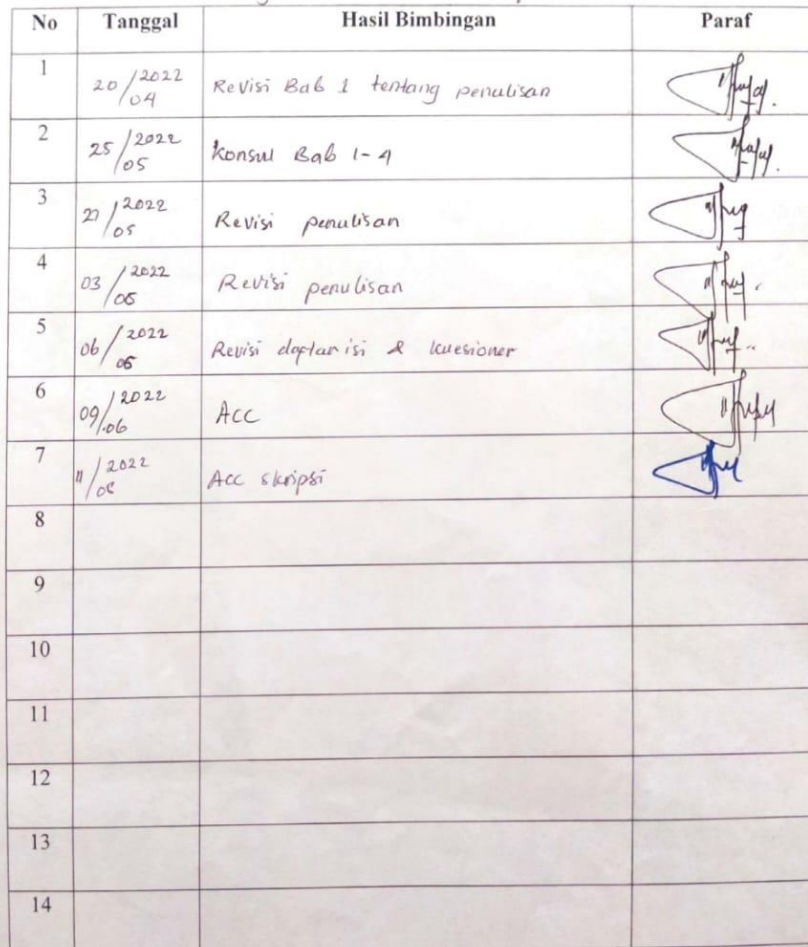 No Tanggal Hasil Bimbingan Paraf
1 20/2022 04 Revisi Bab 1 tentang penulisan
2 25/2022 05 Konsul Bab 1-4
3 27/2022 05 Revisi penulisan
4 03/2022 06 Revisi penulisan
5 06/2022 06 Revisi daftar isi & kuesioner
6 09/2022 06 Acc
7 11/2022 06 Acc skripsi
8
9
10
11
12
13
14